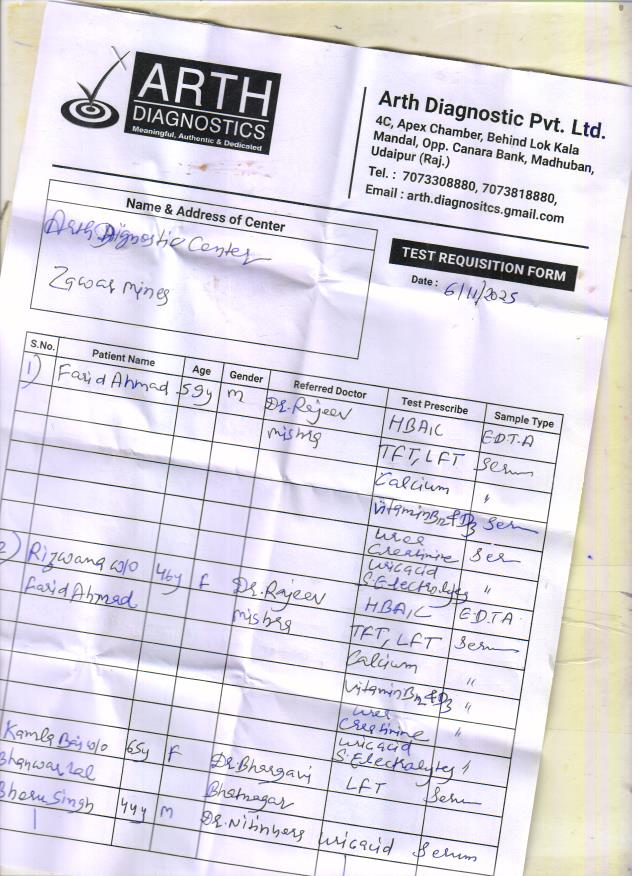 ARTH
DIAGNOSTICS
Meaningful, Authentic & Dedicated
Arth Diagnostic Pvt. Ltd.
4C, Apex Chamber, Behind Lok Kala
Mandal, Opp. Canara Bank, Madhuban,
Udaipur (Raj.)
Tel. : 7073308880, 7073818880,
Email : arth.diagnositcs.gmail.com
Name & Address of Center
Arth Dignostic Center
Zawar mines
TEST REQUISITION FORM
Date : 6/11/2025
S.No. Patient Name Age Gender Referred Doctor Test Prescribe Sample Type
1) Farid Ahmad 59y m Dr. Rajeev HBA1C E.D.T.A
mishra TFT, LFT Serum
Calcium "
Vitamin B12 & D3 Serum
urea
Creatinine Ser
uricacid
S. Electrolytes "
2) Rizwana w/o 46y F Dr. Rajeev HBA1C E.D.T.A
Farid Ahmad mishra TFT, LFT Serum
Calcium "
Vitamin B12 & D3 "
urea
Creatinine "
uricacid
S. Electrolytes "
Kamla Bai w/o 65y F Dr. Bhargavi LFT Serum
Bhanwar lal Bhatnagar
Bheru Singh 44y m Dr. uricacid Serum